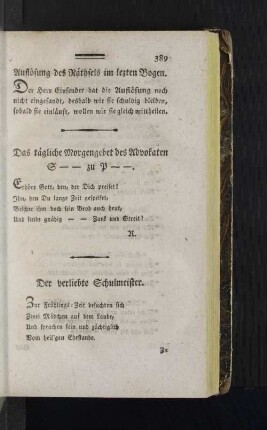 389
Auflösung des Räthsels im lezten Bogen.
Der Herr Einsender hat die Auflösung noch
nicht eingesandt, deshalb wir sie schuldig bleiben,
sobald sie einläuft, wollen wir sie gleich mittheilen.
Das tägliche Morgengebet des Advokaten
S — — zu P — —.
Erhöre Gott, den, der Dich preiset!
Ihn, den Du lange Zeit gespeiset,
Bescher ihm doch sein Brod auch heut,
Und sende gnädig — — Zank und Streit!
R.
Der verliebte Schulmeister.
Zur Frühlings-Zeit besuchten sich
Zwei Mädchen auf dem Lande,
Und sprachen fein und züchtiglich
Vom heil'gen Ehestande.
Zu